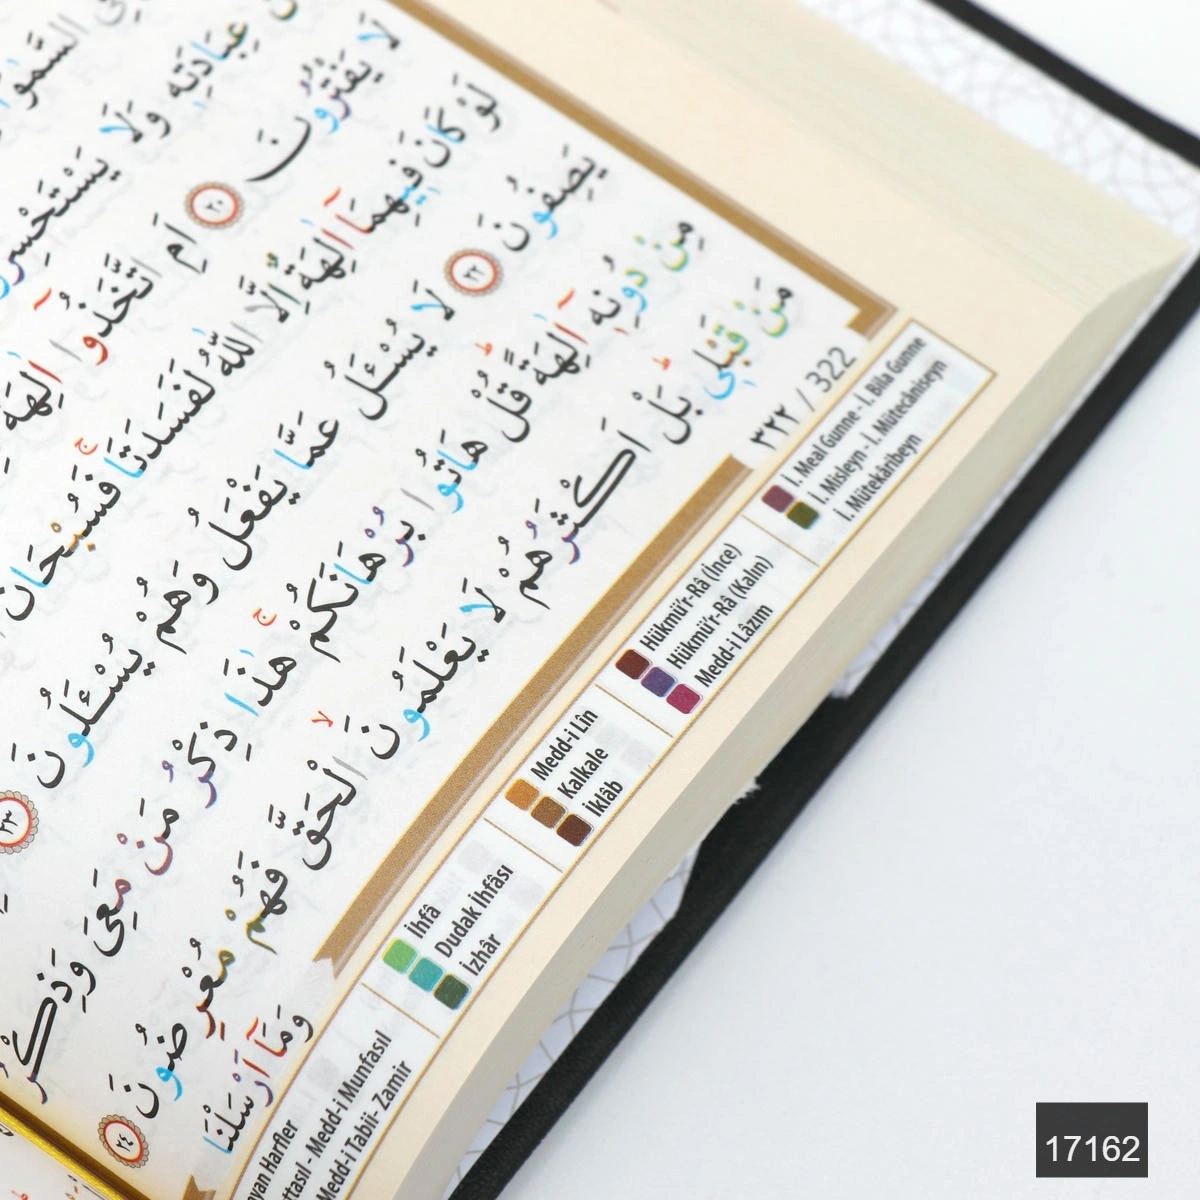 عِبَادَتِه۪ وَلَا يَسْتَحْسِرُو
لَا يَفْتُرُونَ ٢٠ اَمِ اتَّخَذُٓوا اٰلِهَةً
لَوْ كَانَ ف۪يهِمَٓا اٰلِهَةٌ اِلَّا اللّٰهُ لَفَسَدَتَاۚ فَسُبْحَانَ
يَصِفُونَ ٢٢ لَا يُسْـَٔلُ عَمَّا يَفْعَلُ وَهُمْ يُسْـَٔلُونَ ٢٣
مِنْ دُونِه۪ٓ اٰلِهَةًۜ قُلْ هَاتُوا بُرْهَانَكُمْۚ هٰذَا ذِكْرُ مَنْ مَعِيَ وَذِكْرُ
مَنْ قَبْل۪يۜ بَلْ اَكْثَرُهُمْ لَا يَعْلَمُونَۙ الْحَقَّ فَهُمْ مُعْرِضُونَ ٢٤
وَمَٓا اَرْسَلْنَا
٣٢٢ / 322
Medd-i Munfasıl
Medd-i Tabii- Zamir
İhfâ
Dudak İhfâsı
İzhâr
Medd-i Lîn
Kalkale
İklâb
Hükmü'r-Râ (İnce)
Hükmü'r-Râ (Kalın)
Medd-i Lâzım
İ. Meal Gunne - İ. Bila Gunne
İ. Misleyn - İ. Mütecâniseyn
İ. Mütekâribeyn
17162